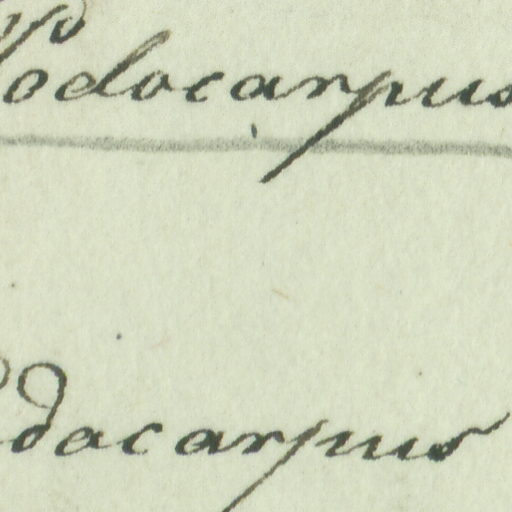 Podocarpus
docarpus